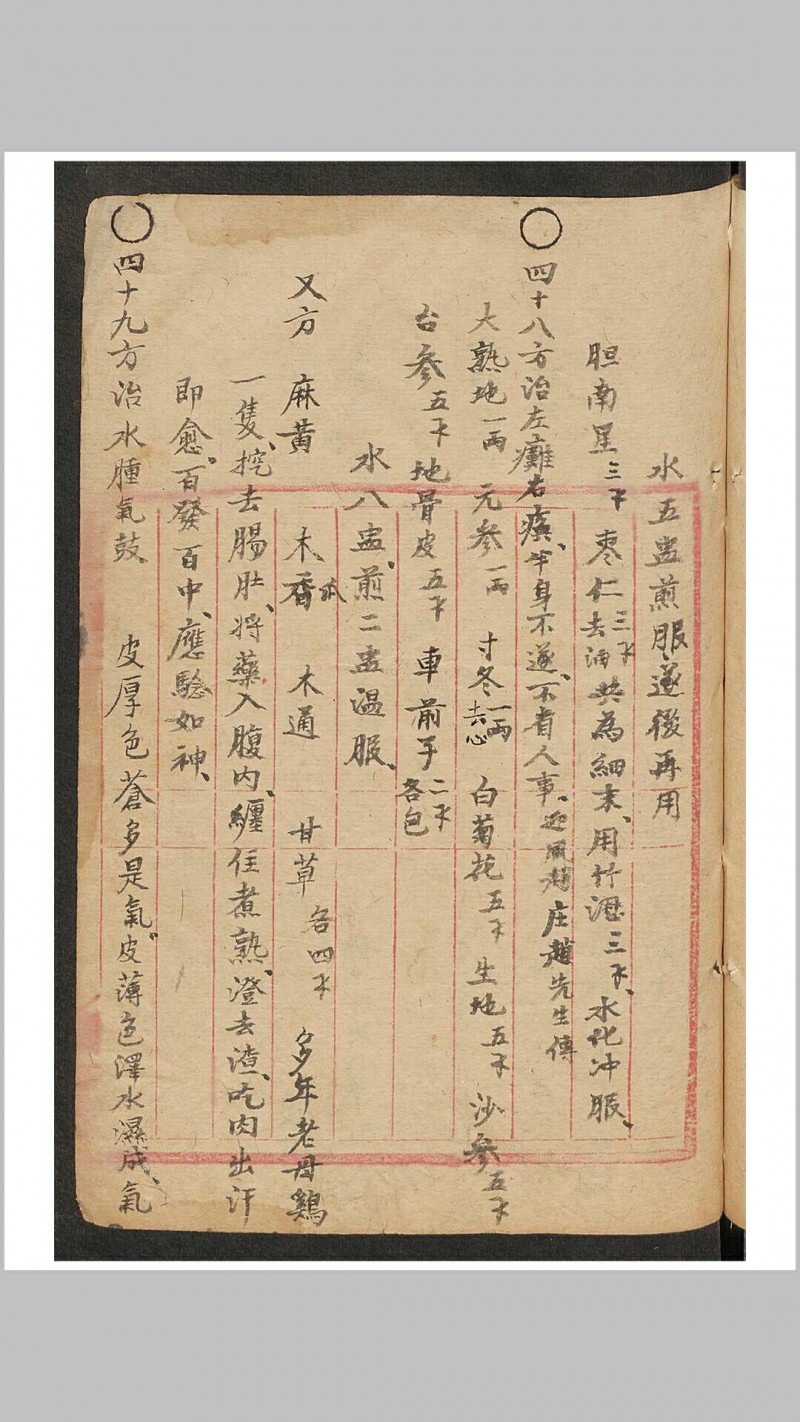 水五盅煎服、遂後再用
胆南星三不 棗仁三不去油 共為細末、用竹瀝三不、水化冲服、
〇四十八方治左癱右瘓、半身不遂、不省人事、迎風趙庄趙先生傳
大熟地一兩 元參一兩 寸冬一兩去心 白菊花五不 生地五不 沙參五不
台參五不 地骨皮五不 車前子二不各包
水八盅、煎二盅温服、
又方 麻黃 木香 木通 甘草各四不 多年老母鷄
一隻、挖去腸肚、將藥入腹内、纏住煮熟、澄去渣、吃肉出汗
即愈。百發百中、應驗如神、
〇四十九方治水腫氣鼓、 皮厚色蒼多是氣、皮薄色澤水濕成、氣